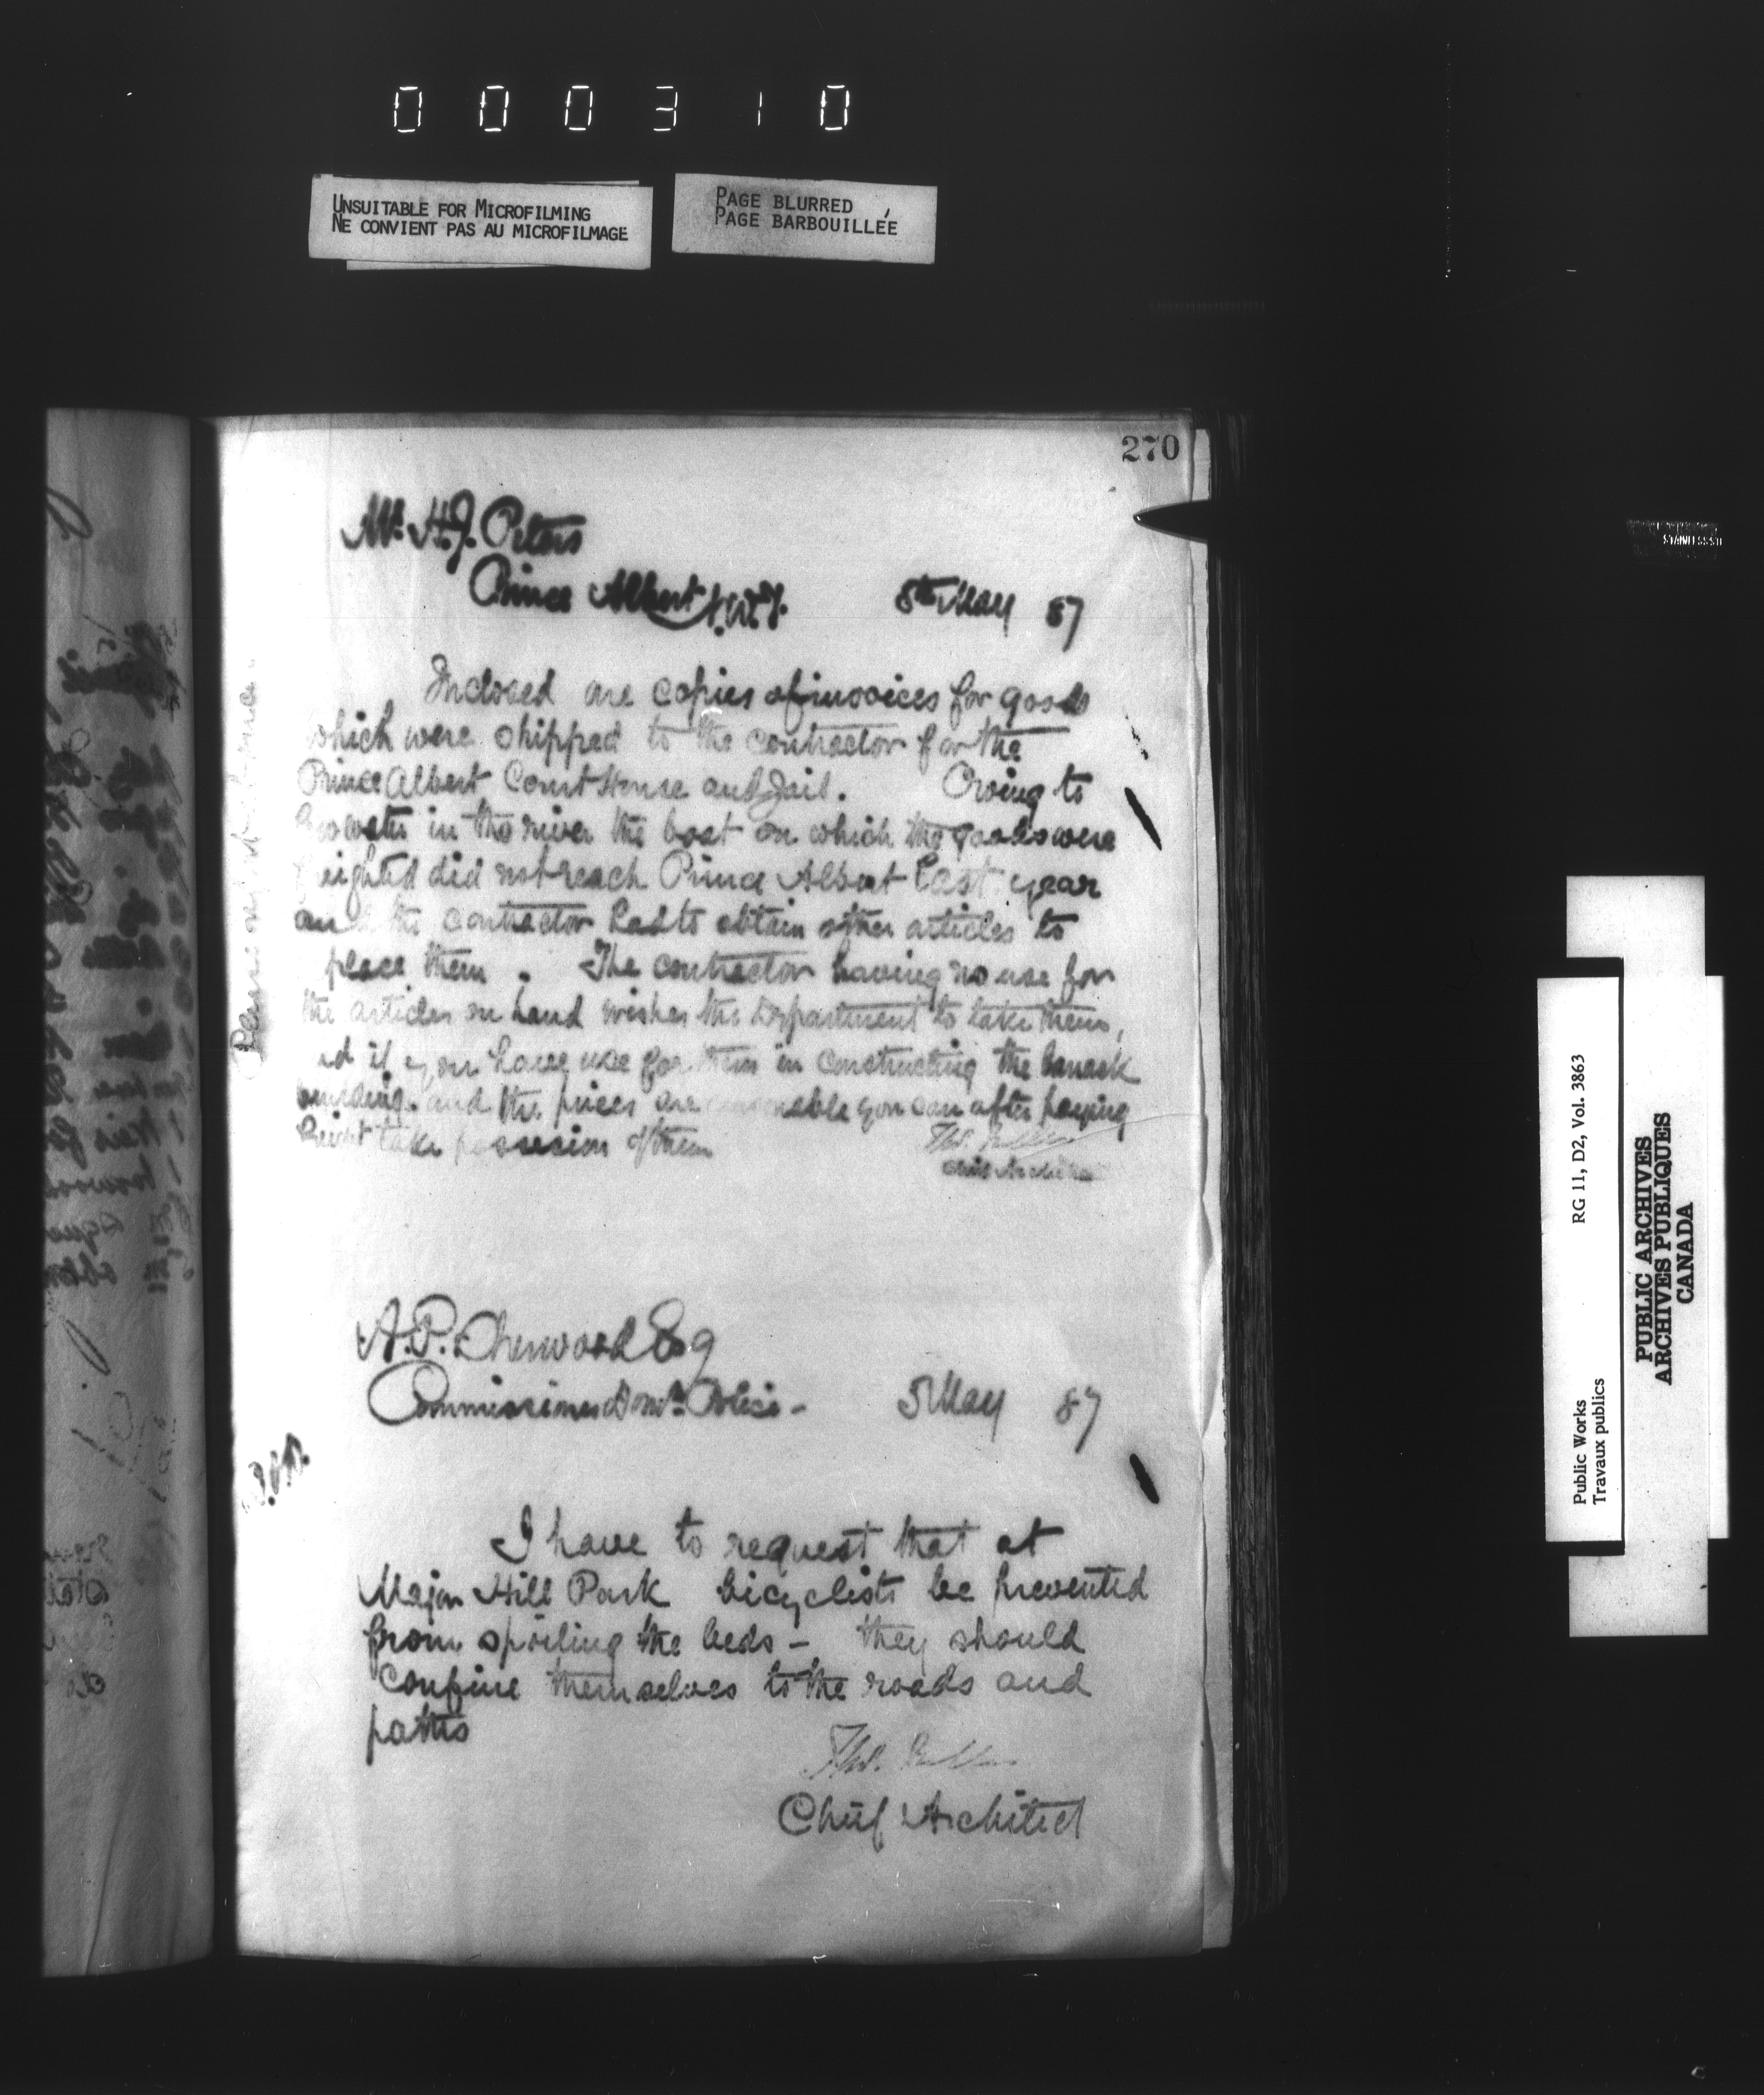 000310
UNSUITABLE FOR MICROFILMING
NE CONVIENT PAS AU MICROFILMAGE
PAGE BLURRED
PAGE BARBOUILLÉE
270
Mr. H.J. Peters
Prince Albert N.W.T. 5th May 87
Inclosed are copies of invoices for goods
which were shipped to the contractor for the
Prince Albert Court House and Jail. Owing to
low water in the river the boat on which the goods were
freighted did not reach Prince Albert last year
and the contractor had to obtain other articles to
place them. The contractor having no use for
the articles on hand wishes the Department to take them,
and if you have use for them in constructing the barrack
building and the prices are reasonable you can after paying
freight take possession of them
Thos. Fuller
Chief Architect
A.P. Sherwood Esq
Commissioner Domn. Police - 5 May 87
I have to request that at
Major Hill Park bicyclists be prevented
from spoiling the beds - they should
confine themselves to the roads and
paths
Thos. Fuller
Chief Architect
Public Works
Travaux publics
RG 11, D2, Vol. 3863
PUBLIC ARCHIVES
ARCHIVES PUBLIQUES
CANADA